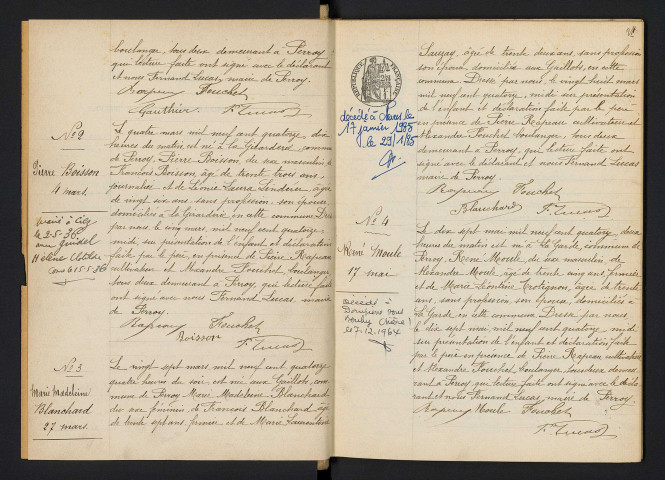 boulanger, tous deux demeurant à Perroy
qui lecture faite ont signé avec le déclarant
et nous Fernand Lucas, maire de Perroy.
Rapeau Fouchet
Gauthier F. Lucas
N° 2
Pierre Boisson
4 mars.
Marié à
le 2-5-36
Hélène
Le quatre mars mil neuf cent quatorze, dix
heures du matin, est né à la Girarderie, commune
de Perroy, Pierre Boisson, du sexe masculin, de
François Boisson, âgé de trente trois ans,
journalier et de Léonie Laura Lindour, âgée
de vingt six ans, sans profession, son épouse,
domiciliés à la Girarderie en cette commune. Dressé
par nous, le cinq mars mil neuf cent quatorze,
midi, sur présentation de l'enfant et déclaration
faite par le père, en présence de Pierre Rapeau
cultivateur et Alexandre Fouchet boulanger,
tous deux demeurant à Perroy, qui, lecture faite
ont signé avec nous Fernand Lucas, maire
de Perroy.
Rapeau Fouchet
Boisson F. Lucas
N° 3
Marie Madeleine
Blanchard
27 mars.
Le vingt sept mars mil neuf cent quatorze
quatre heures du soir, est née aux Gaillots, com-
mune de Perroy Marie Madeleine Blanchard
du sexe féminin de François Blanchard âgé
de trente sept ans, fermier et de Marie Laurentine
RÉPUBLIQUE FRANÇAISE
décédée à le
17 janvier 1985
le 29/1/85
Sauzay, âgée de trente deux ans, sans profession
son épouse, domiciliés aux Gaillots, en cette
commune. Dressé par nous, le vingt huit mars
mil neuf cent quatorze, midi sur présentation
de l'enfant et déclaration faite par le père
en présence de Pierre Rapeau cultivateur et
Alexandre Fouchet boulanger, tous deux
demeurant à Perroy, qui, lecture faite ont
signé avec le déclarant et nous Fernand Lucas
maire de Perroy.
Rapeau Fouchet
Blanchard F. Lucas
N° 4
René Moule
17 mai
Décédé à
Dompierre sous
(Nièvre)
le 7.12.1964
Le dix sept mai mil neuf cent quatorze, deux
heures du matin est né à La Garde, commune de
Perroy, René Moule, du sexe masculin de
Alexandre Moule âgé de trente cinq ans, fermier
et de Marie Léontine Crotignon, âgée de trente
ans, sans profession, son épouse, domiciliés à
La Garde en cette commune. Dressé par nous,
le dix sept mai mil neuf cent quatorze, midi
sur présentation de l'enfant et déclaration faite
par le père en présence de Pierre Rapeau cultivateur
et Alexandre Fouchet, boulanger, tous deux demeu-
rant à Perroy, qui lecture faite ont signé avec le décla-
rant et nous Fernand Lucas, maire de Perroy.
Rapeau Moule Fouchet
F. Lucas